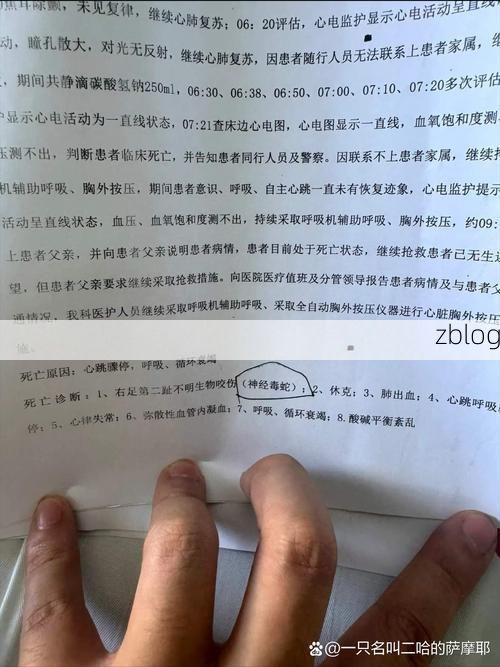 焦耳除颤，未见复律，继续心肺复苏；06：20评估，心电监护显示心电活动呈一直
动，瞳孔散大，对光无反射，继续心肺复苏，因患者随行人员无法联系上患者家属，继
，期间共静滴碳酸氢钠250ml，06:30、06:38、06:50、07:00、07:10、07:20多次评估
护显示心电活动为一直线状态，07:21查床边心电图，心电图显示一直线，血氧饱和度测
压测不出，判断患者临床死亡，并告知患者同行人员及警察。因联系不上患者家属，继续
机辅助呼吸、胸外按压，期间患者意识、呼吸、自主心跳一直未有恢复迹象，心电监护提示
活动呈直线状态，血压、血氧饱和度测不出，持续采取呼吸机辅助呼吸、胸外按压，约09：
上患者父亲，并向患者父亲说明患者病情，患者目前处于死亡状态，继续抢救患者已无生还
望，但患者父亲要求继续采取抢救措施。向医院医疗值班及分管领导报告患者病情及与患者父
通情况，我科医护人员继续采取呼吸机辅助呼吸、采取全自动胸外按压仪器进行心脏胸外按压
施。
zblog
死亡原因：心跳骤停，呼吸、循环衰竭
死亡诊断：1、右足第二趾不明生物咬伤（神经毒蛇）；2、休克；3、肺出血；4、心跳呼吸
停；5、心律失常；6、弥散性血管内凝血；7、呼吸、循环衰竭；8.酸碱平衡紊乱
@一只名叫二哈的萨摩耶